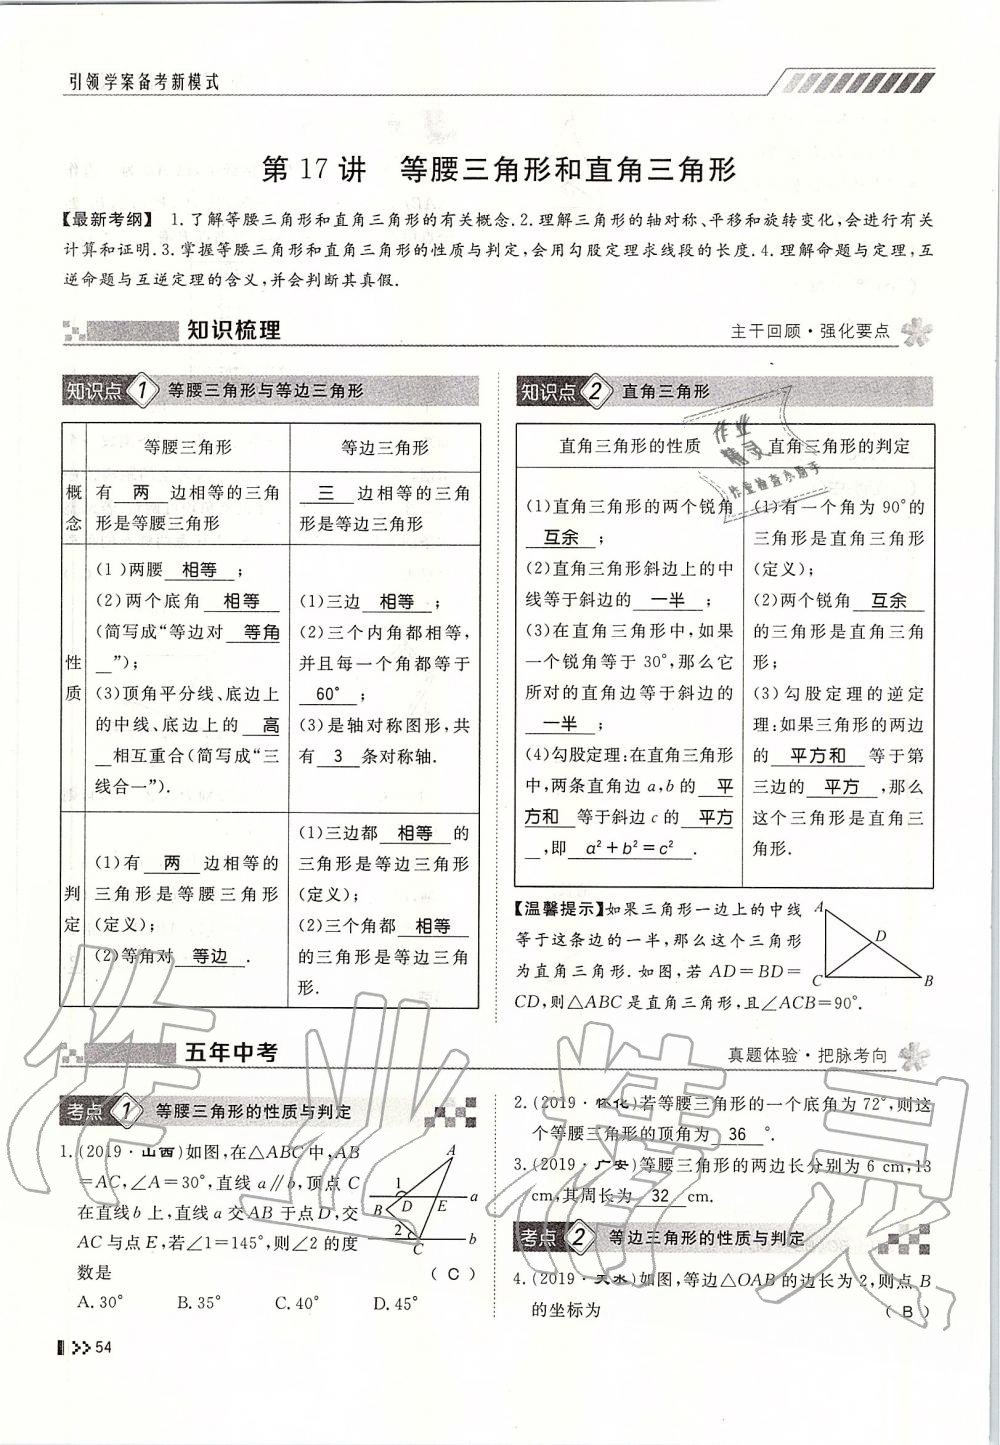 引领学案备考新模式
第 17 讲 等腰三角形和直角三角形
【最新考纲】 1.了解等腰三角形和直角三角形的有关概念.2.理解三角形的轴对称、平移和旋转变化,会进行有关
计算和证明.3.掌握等腰三角形和直角三角形的性质与判定,会用勾股定理求线段的长度.4.理解命题与定理,互
逆命题与互逆定理的含义,并会判断其真假.
知识梳理
主干回顾·强化要点
知识点 1 等腰三角形与等边三角形
等腰三角形 等边三角形
概念
有 两 边相等的三角
形是等腰三角形
三 边相等的三角
形是等边三角形
性质
(1)两腰 相等 ;
(2)两个底角 相等
(简写成“等边对 等角
”);
(3)顶角平分线、底边上
的中线、底边上的 高
相互重合(简写成“三
线合一”).
(1)三边 相等 ;
(2)三个内角都相等,
并且每一个角都等于
60° ;
(3)是轴对称图形,共
有 3 条对称轴.
判定
(1)有 两 边相等的
三角形是等腰三角形
(定义);
(2)等角对 等边 .
(1)三边都 相等 的
三角形是等边三角形
(定义);
(2)三个角都 相等
的三角形是等边三角
形.
知识点 2 直角三角形
直角三角形的性质 直角三角形的判定
(1)直角三角形的两个锐角
互余 ;
(2)直角三角形斜边上的中
线等于斜边的 一半 ;
(3)在直角三角形中,如果
一个锐角等于 30°,那么它
所对的直角边等于斜边的
一半 ;
(4)勾股定理:在直角三角形
中,两条直角边 a,b 的 平
方和 等于斜边 c 的 平方
,即 a²+b²=c² .
(1)有一个角为 90°的
三角形是直角三角形
(定义);
(2)两个锐角 互余
的三角形是直角三角
形;
(3)勾股定理的逆定
理:如果三角形的两边
的 平方和 等于第
三边的 平方 ,那么
这个三角形是直角三
角形.
【温馨提示】如果三角形一边上的中线
等于这条边的一半,那么这个三角形
为直角三角形.如图,若 AD=BD=
CD,则△ABC 是直角三角形,且∠ACB=90°.
A
D
C
B
作业
精灵
作业检查小助手
五年中考
真题体验·把脉考向
考点 1 等腰三角形的性质与判定
1.(2019·山西)如图,在△ABC中,AB
=AC,∠A=30°,直线 a∥b,顶点 C
在直线 b 上,直线 a 交 AB 于点 D,交
AC 与点 E,若∠1=145°,则∠2 的度
数是 ( C )
A.30° B.35° C.40° D.45°
A
1
a
B
D
E
2
C
b
2.(2019·怀化)若等腰三角形的一个底角为 72°,则这
个等腰三角形的顶角为 36 °.
3.(2019·广安)等腰三角形的两边长分别为 6 cm,13
cm,其周长为 32 cm.
考点 2 等边三角形的性质与判定
4.(2019·天水)如图,等边△OAB 的边长为 2,则点 B
的坐标为 ( B )
作业精灵
54